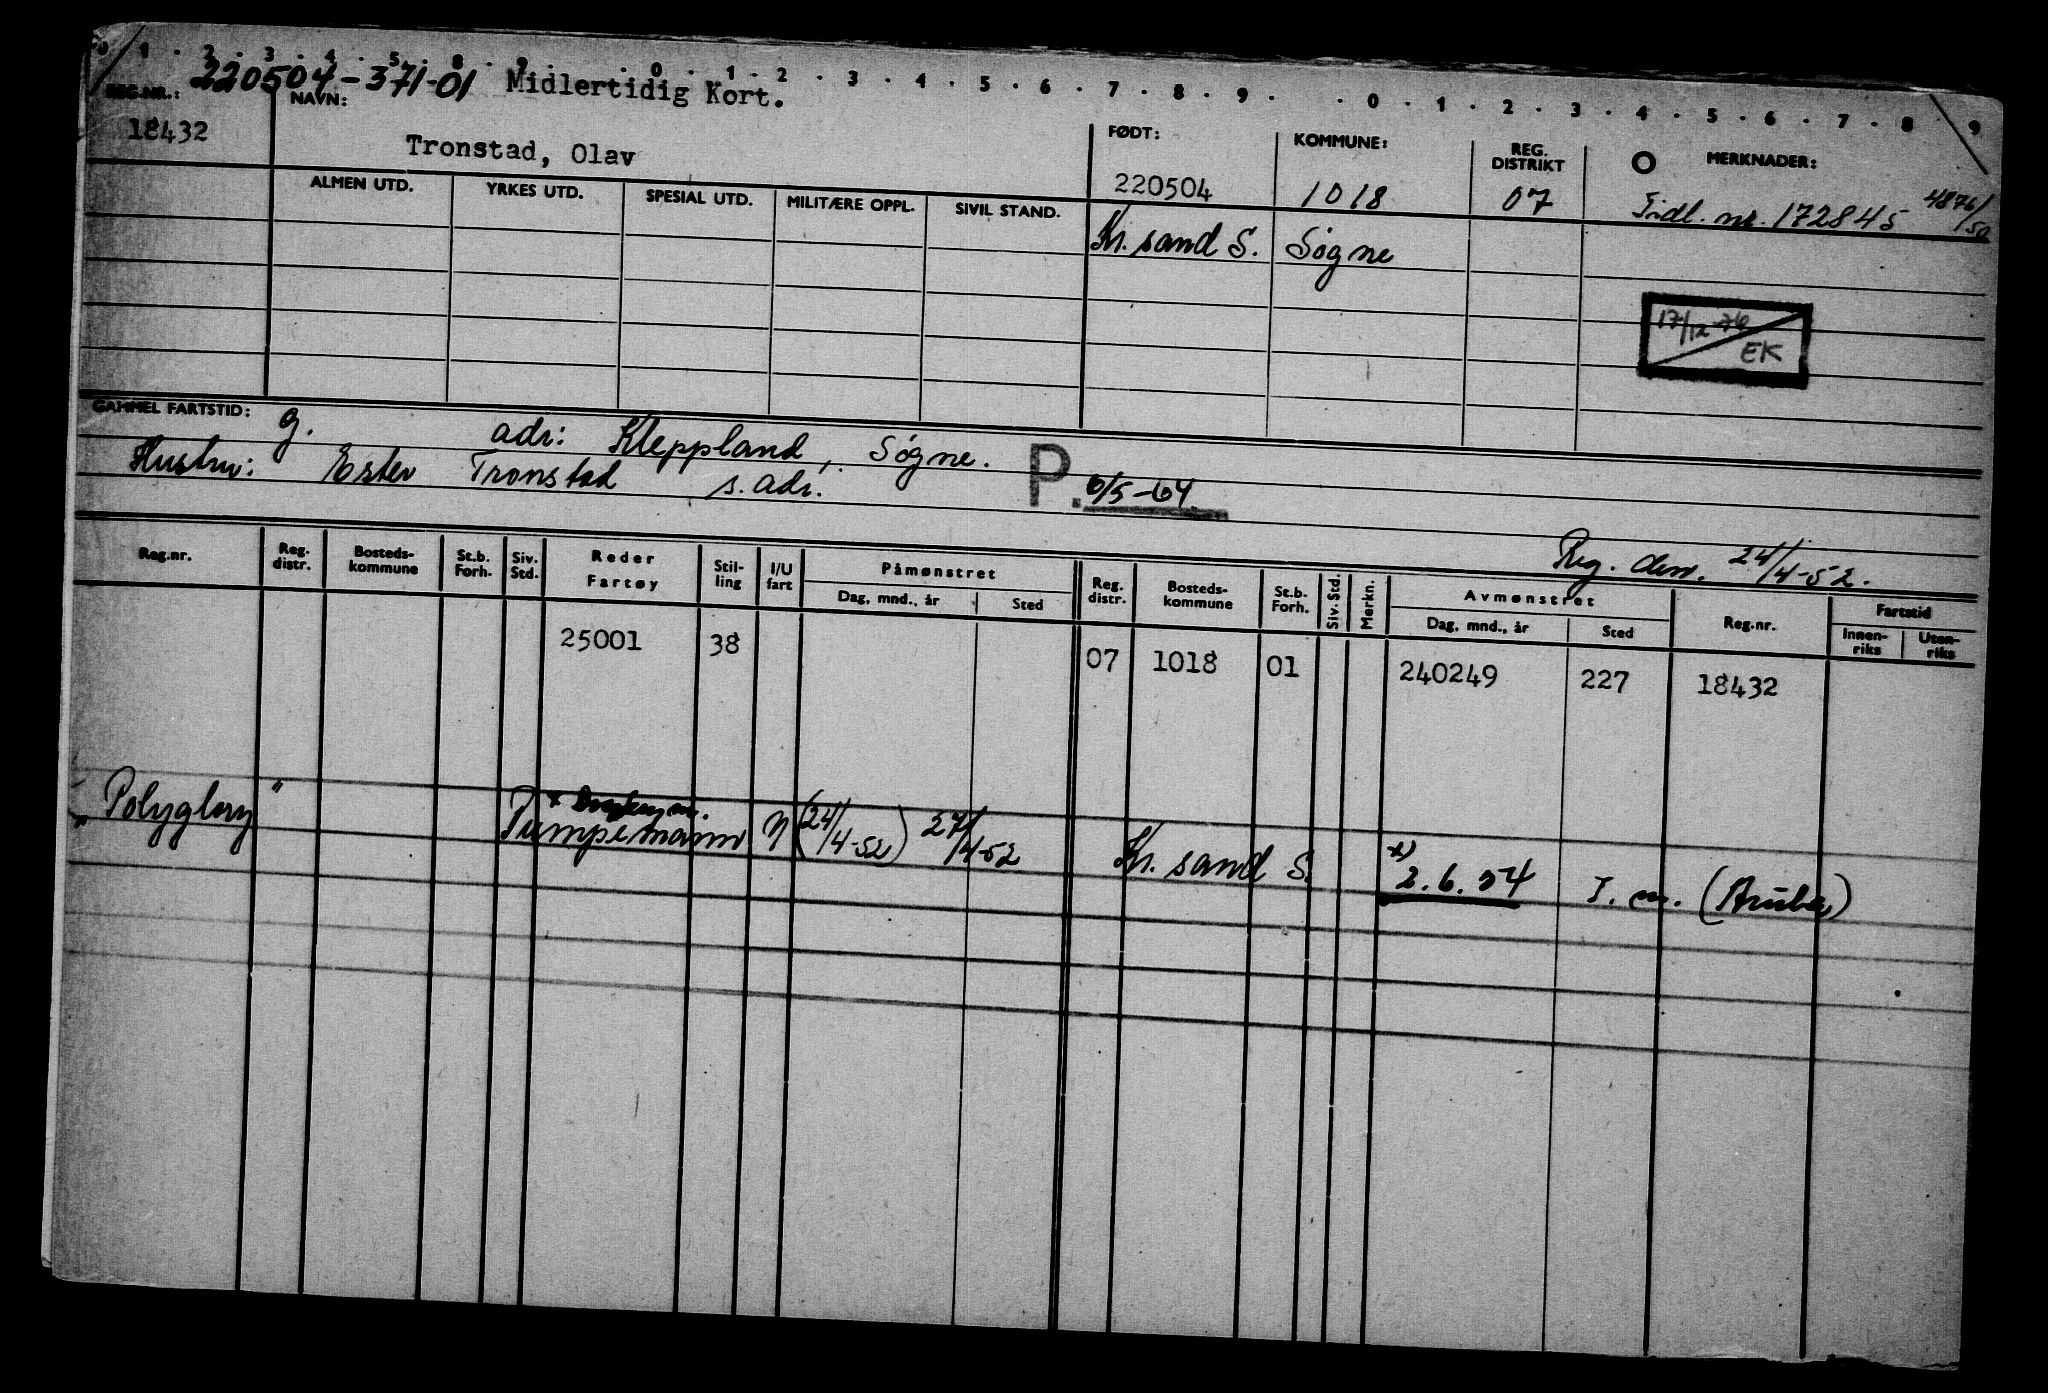 0 1 . 2 . 3 . 4 . 5 . 8 . 9 . . 0 . 1 . 2 . 3 . 4 . 5 . 6 . 7 . 8 . 9 . . 0 . 1 . 2 . 3 . 4 . 5 . 6 . 7 . 8 . 9
220504-371-01 Midlertidig Kort.
REG.NR.: NAVN: FØDT: KOMMUNE: REG. DISTRIKT MERKNADER:
18432 Tronstad, Olav 220504 1018 07 Tidl. nr. 172845 4876/50
ALMEN UTD. YRKES UTD. SPESIAL UTD. MILITÆRE OPPL. SIVIL STAND.
Kr. sand S. Søgne
17/12-76
EK
GAMMEL FARTSTID: g. adr: Kleppland, Søgne.
Hustru: Ester Tronstad s. adr. P. 6/5-64
Reg. den. 24/4-52.
Reg.nr. Reg. distr. Bosteds-kommune St.b. Forh. Siv. Std. Reder Fartøy Stil-ling I/U fart Påmønstret Dag, mnd., år Sted Reg. distr. Bosteds-kommune St.b. Forh. Siv. Std. Merkn. Avmønstret Dag, mnd., år Sted Reg.nr. Fartstid Innen-riks Uten-riks
25001 38 07 1018 01 240249 227 18432
Polyglory " Pumpemann N (24/4-52) 27/4-52 Kr. sand S. x) 2.6.54 T. m. (Aruba)